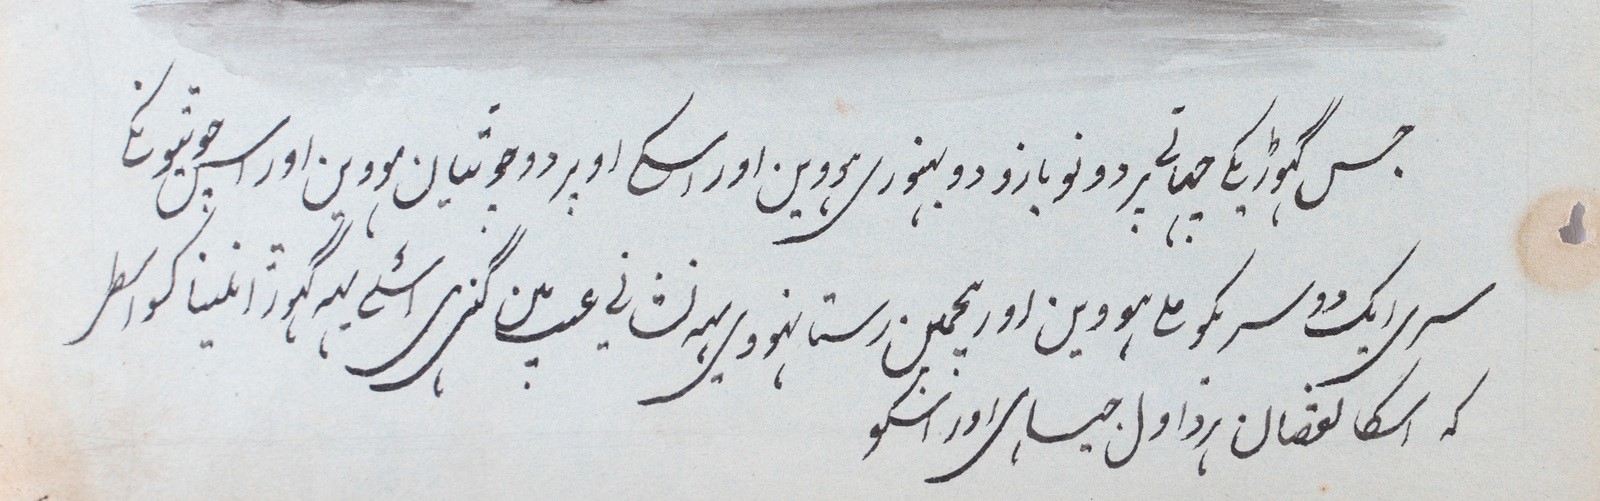 جس گہوڑیکے چہاتے پر دونو بازو دو بہنوری ہووین اور اسکے اوپر دو چوٹیان ہووین اور اسین چوٹیونکے
سری ایک دوسریکو ملے ہووین اور بیچمین رستا نہووی یہہ نشانی عیب مین گنتی ہی اسلئے یہہ گہوڑا نلینا کسواسطے
کہ اسکا نقصان ہرذاول جیسا ہی اور اسکو